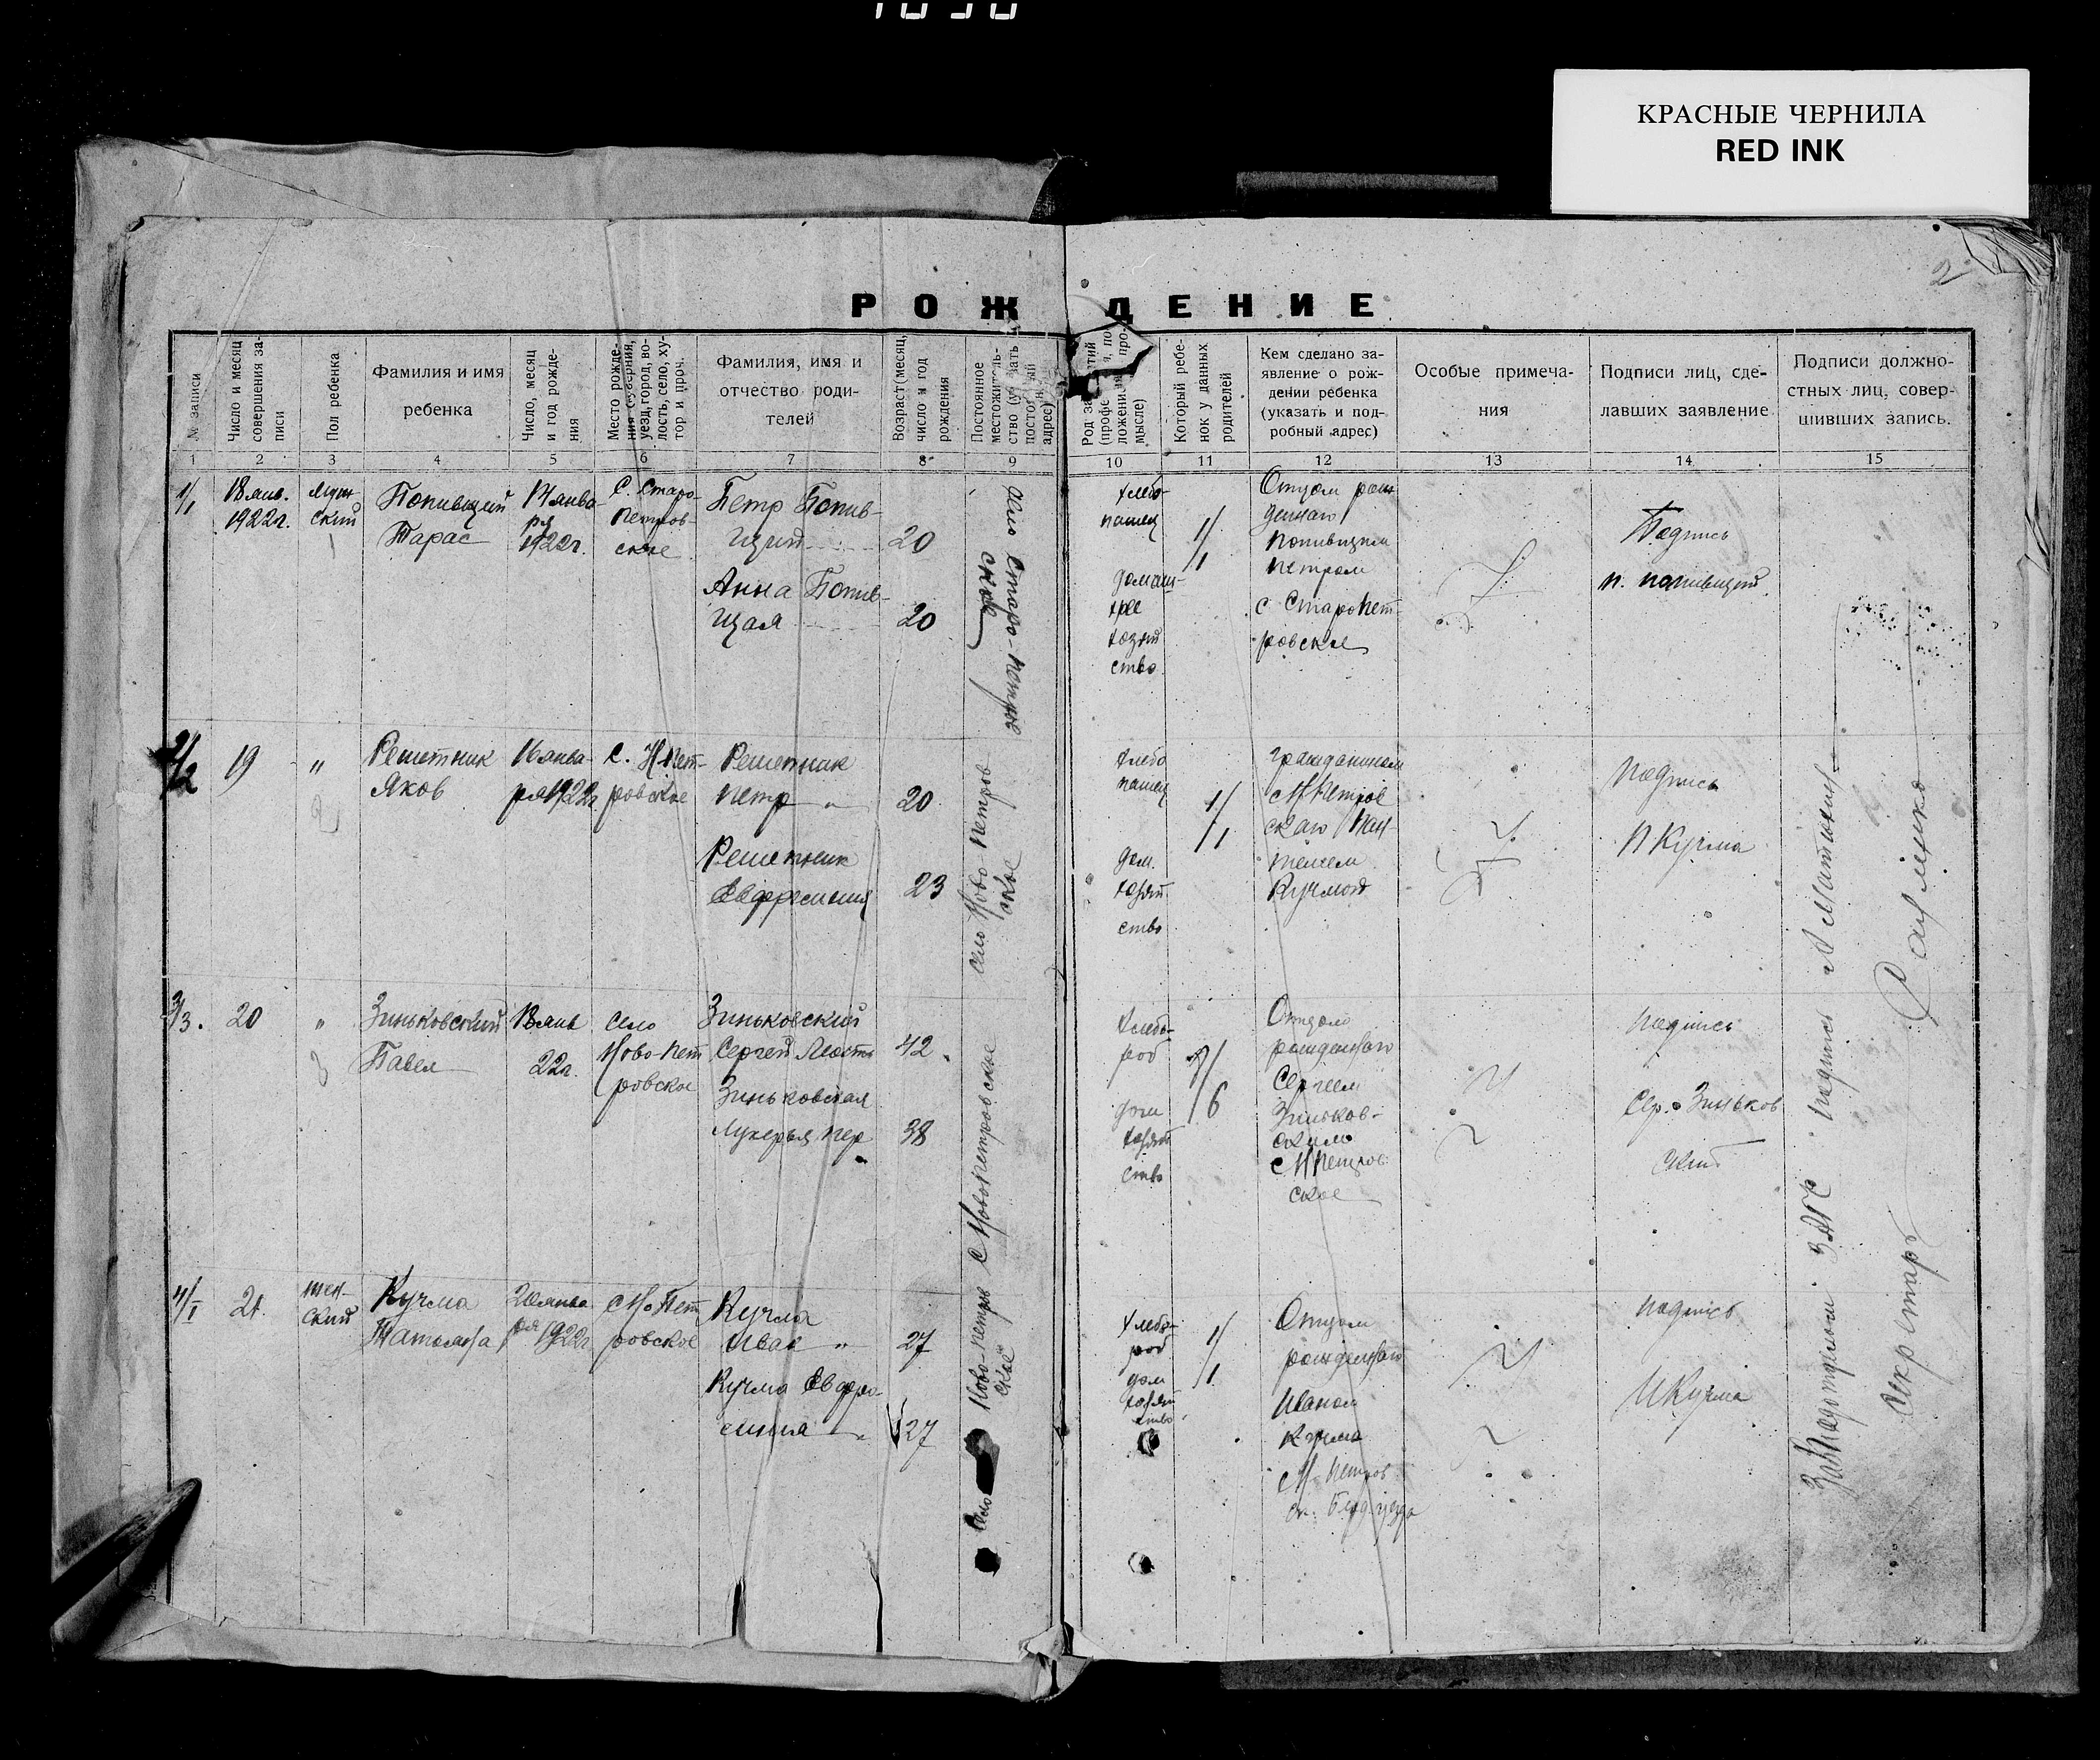 КРАСНЫЕ ЧЕРНИЛА
RED INK
2
РОЖДЕНИЕ
№ записи
Число и месяц совершения записи
Пол ребенка
Фамилия и имя
ребенка
Число, месяц и год рождения
Место рождения (губерния, уезд, город, волость, село, хутор и проч.
Фамилия, имя и
отчество роди-
телей
Возраст (месяц, число и год рождения
Постоянное местожительство
адрес)
Который ребенок у данных родителей
Кем сделано за-
явление о рож-
дении ребенка
(указать и под-
робный адрес)
Особые примеча-
ния
Подписи лиц, сде-
лавших заявление
Подписи должно-
стных лиц, совер-
шивших запись.
1 2 3 4 5 6 7 8 9 10 11 12 13 14 15
1/1
18 янв.
1922г.
муж
ский
Попивщий
Тарас
14 янва-
ря
1922г.
С. Старо-
петров-
ское
Петр Попив-
щий
20
Анна Попив-
щая
20
село Старо-петров
ское
хлебо-
пашец
домаш-
нее
хозяй
ство
1/1
Отцом рож
деннаго
Попивщим
Петром
с Старопет-
ровское
Подпись
П. Попивщий
2/2
19
"
Решетник
Яков
16 янва-
ря 1922г
с. Н-Пет-
ровское
Решетник
Петр "
20
Решетник
Евфросиния
23
село Ново Петров
ское
хлебо
пашец
дом.
хозяй
ство
1/1
гражданином
с Н Петров
скаго Пан-
телеем
Кучмой
Подпись
П Кучма
3/3.
20
"
Зиньковский
Павел
18 янв
22г.
село
Ново-Пет
ровское
Зиньковский
Сергей
42
Зиньковская
Лукерья
38
с Новопетровское
хлебо-
роб
дом
хозяй
ство
/6
Отцом
рожденнаго
Сергеем
Зиньков-
ским
с Н Петров
ское
подпись
Сер. Зиньков
ский
4/1
21
жен-
ский
Кучма
Татьяна
20 янва
ря 1922г
с Но Пет
ровское
Кучма
Иван "
27
Кучма Евфро-
синия "
27
село Ново-петров
ское
хлебо-
роб
дом
хозяй
ство
1/1
Отцом
рожденнаго
Иваном
Кучма
с Н-Петров
ск. Берд уезда
подпись
И Кучма
Заведующий ЗАГС подпись
Секретарь